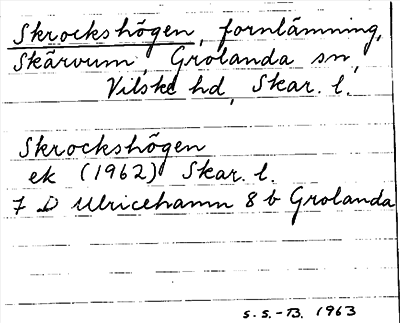 Skrockshögen, fornlämning,
Skärvum, Grolanda sn,
Vilske hd, Skar. l.
Skrockshögen
ek (1962) Skar. l.
7 D Ulricehamn 8 b Grolanda
S.S.-B. 1963